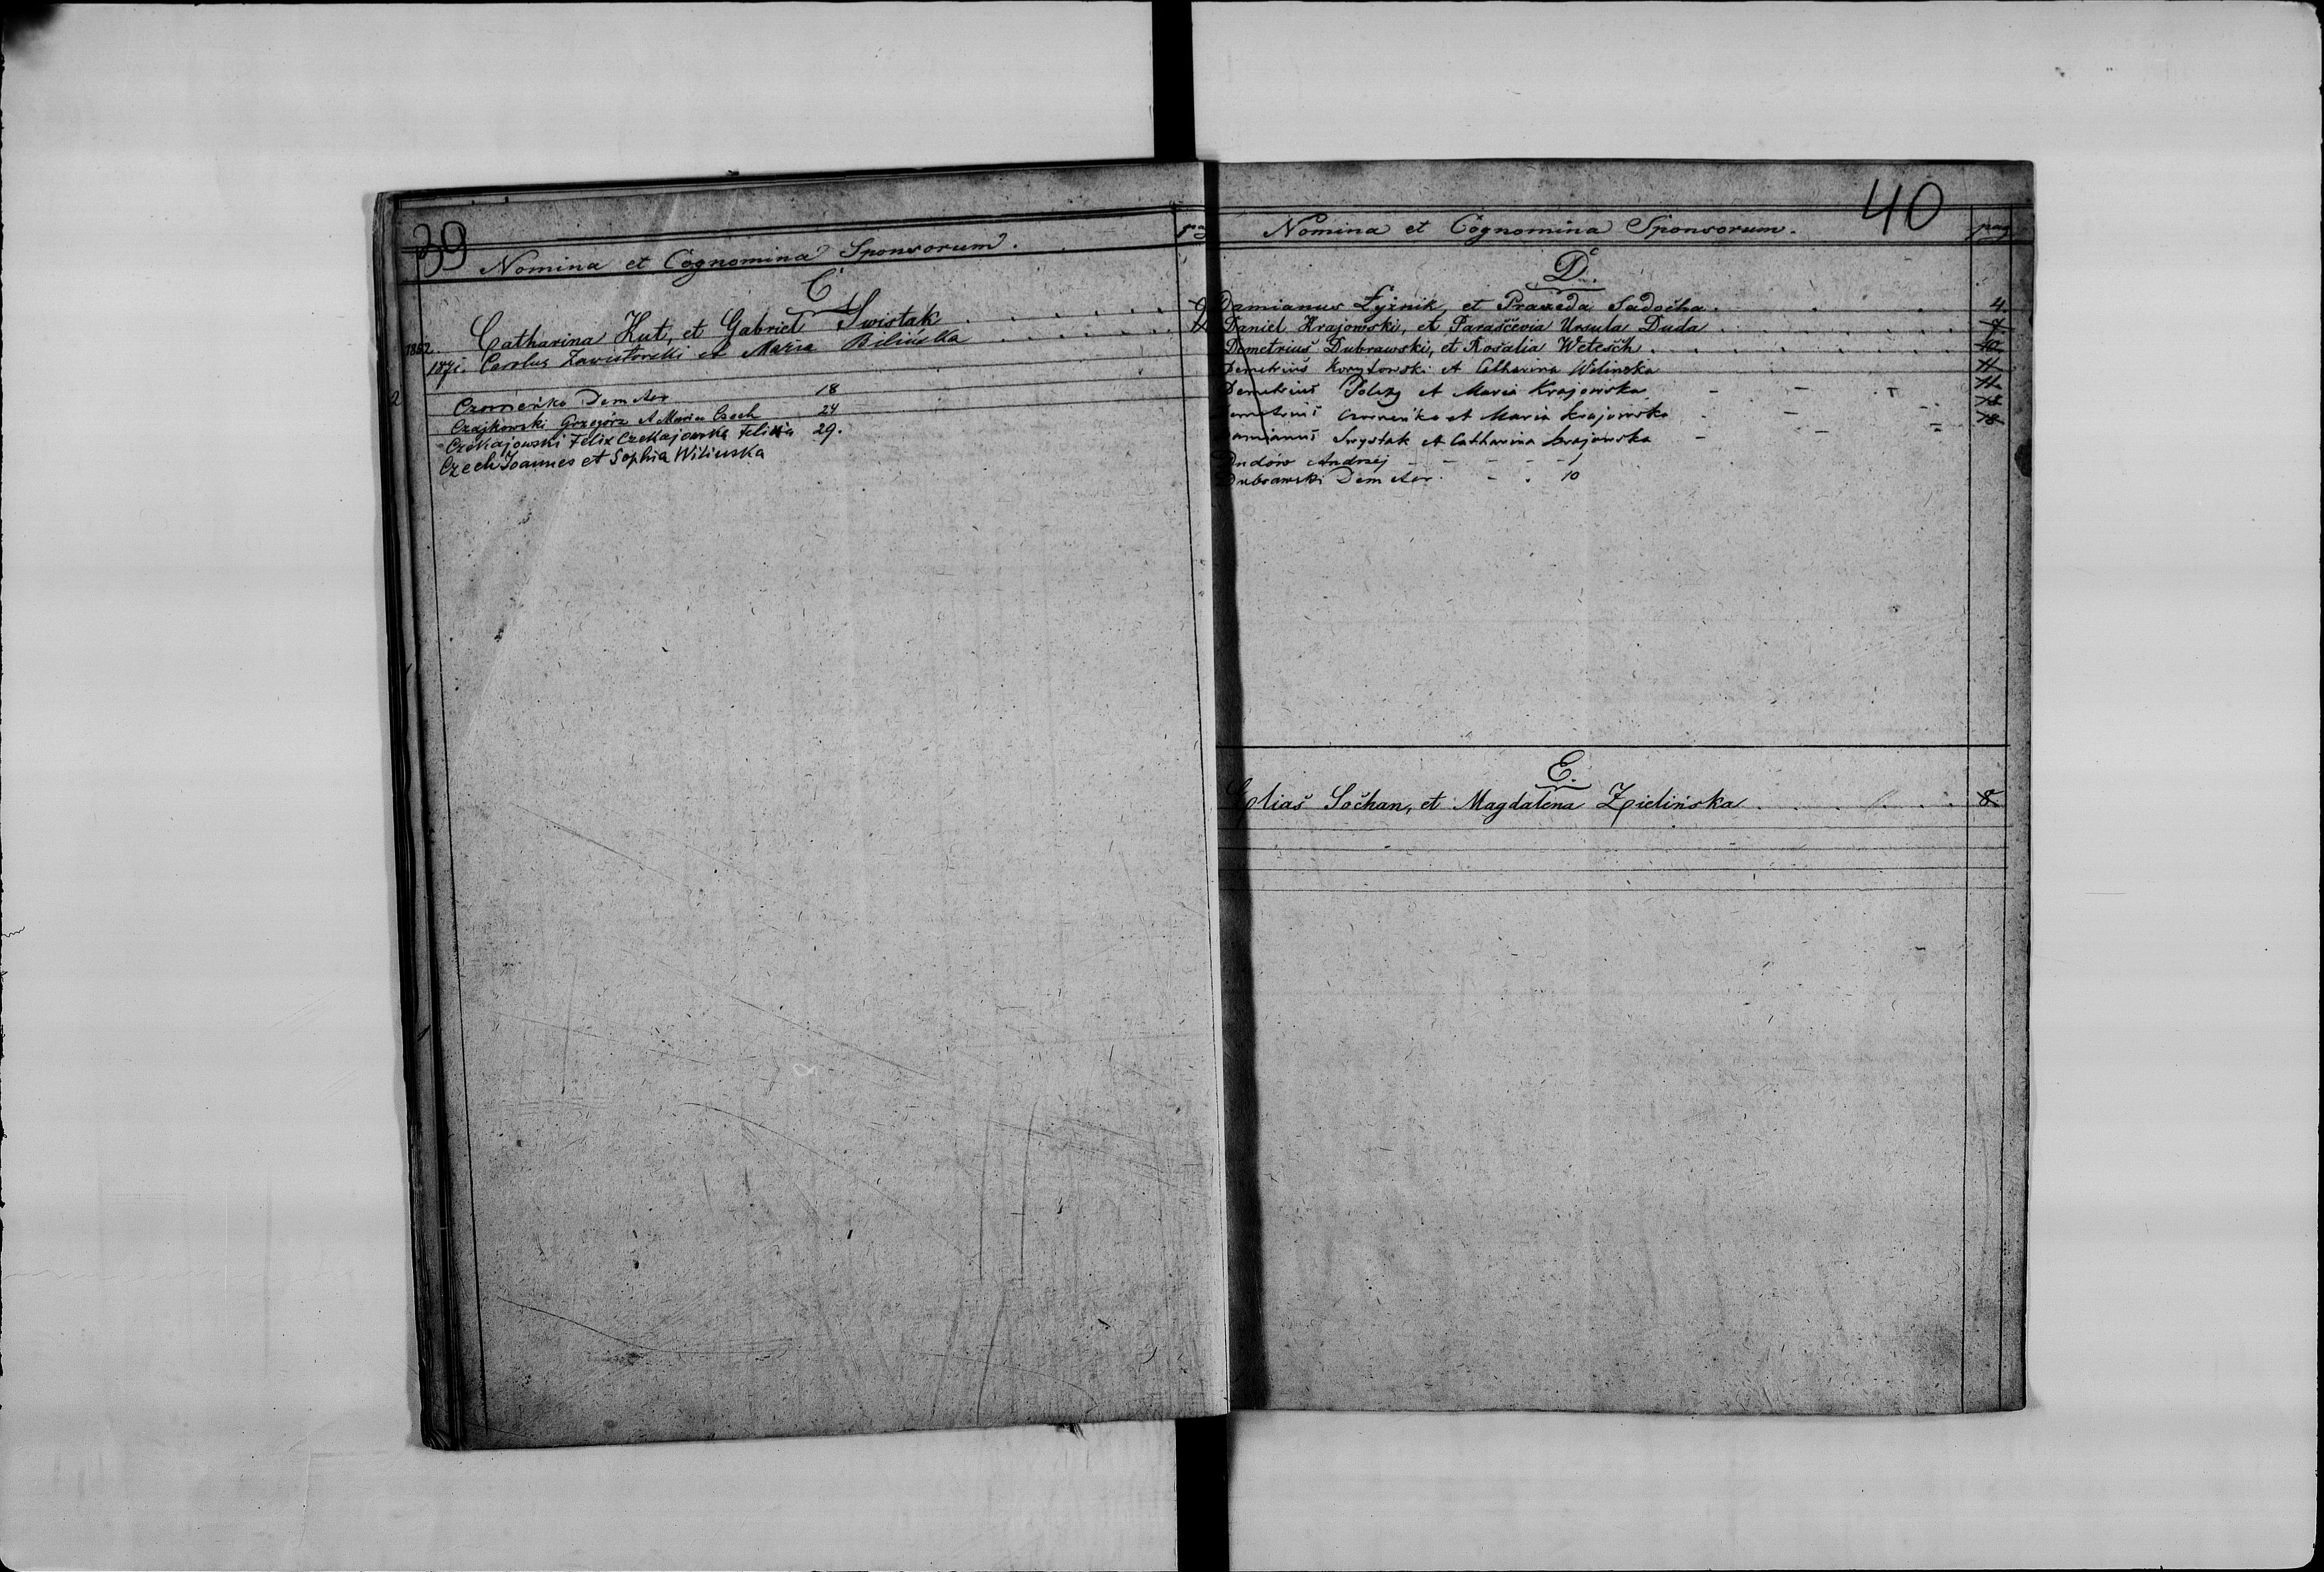 39
Nomina et Cognomina Sponsorum. pag
C
1852. Catharina Kut, et Gabriel Swistak . . . . . . . 9
1871. Carolus Zawistowski et Maria Bilińska . . . . . . .
2
Czorneńko Demeter 18
Czajkowski Grzegórz et Maria Czech 24
Czekajowski Felix Czekajowska Felixia 29.
Czech Joannes et Sophia Wilinska
40
Nomina et Cognomina Sponsorum. pag
D.
Damianus Łyżnik, et Praxeda Sadočha . . . 4.
Daniel Krajowski, et Parasčevia Ursula Duda . . . . . . . 7
Demetriuš Dubrawski, et Rosalia Weteščh . . . . . . . 10.
Demetriuš Korytowski et Catharina Wilinska 11.
Demetriuš et Maria Krajowska - - - 11.
Demetriuš Czorneńko et Maria Krajowska - - - 18
Damianuš Swystak et Catharina Krajowska - - - 18
Dudów Andrzej - - - - - 1
Dubrawski Demeter - . 10
E.
Eliaš Sočhan, et Magdalena Zielińska . . . . . 8.